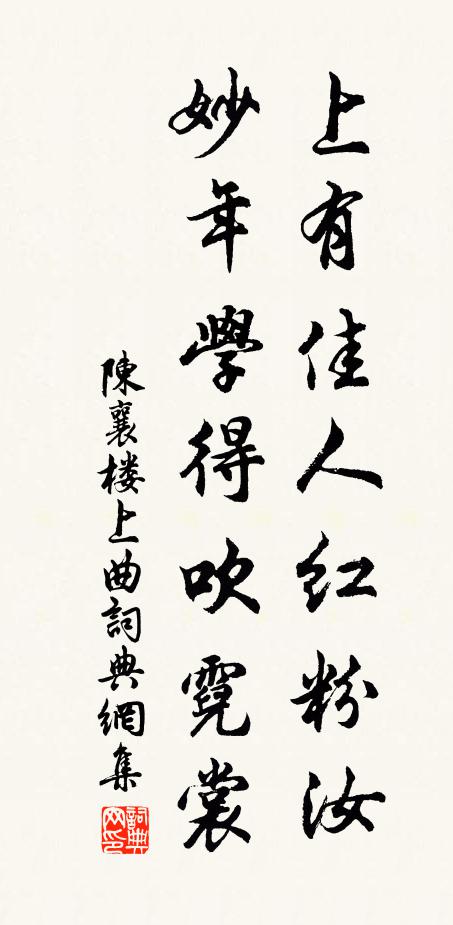 上有佳人红粉汝
妙年學得吹霓裳
陳襄楼上曲詞典網集
詞典网印